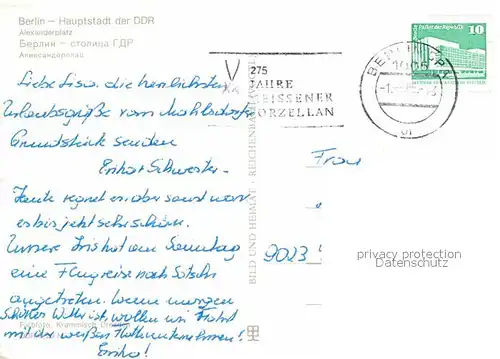 Berlin – Hauptstadt der DDR
Alexanderplatz
Берлин – столица ГДР
Александерплац
275
JAHRE
MEISSENER
PORZELLAN
10
Liebe Lisa, die herzlichsten
Urlaubsgrüße vom Mahlsdorfer
Grundstück senden
Schwester.
Heute regnet es, aber sonst war
es bis jetzt sehr schön.
Unsere Iris hat am Sonntag
eine Flugreise nach Sotschi
angetreten. Wenn morgen
Schönes Wetter ist, wollen wir Fahrt
mit der weißen Flotte unternehmen!
Frau
9023
BILD UND HEIMAT REICHENBACH
privacy protection
Datenschutz
Farbfoto: Krammisch, Dresden